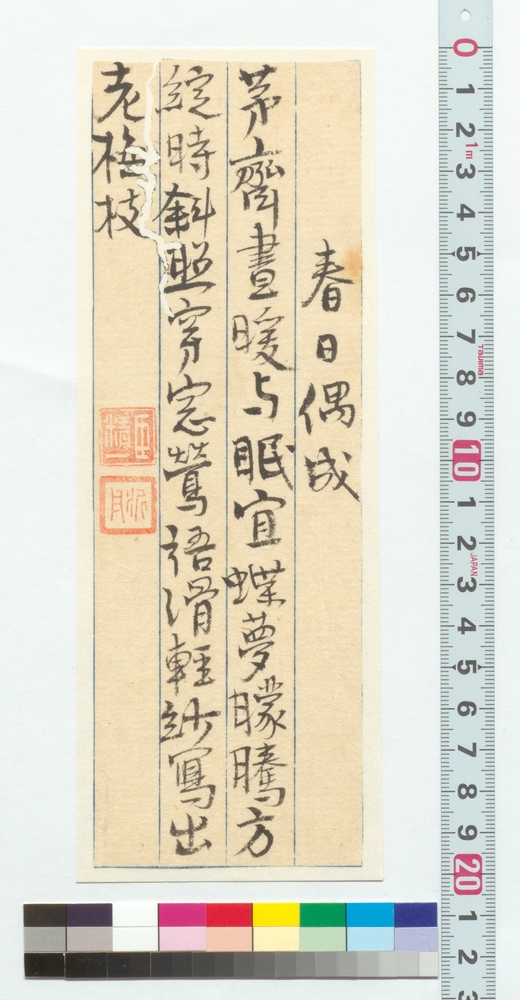 春日偶成
茅齋晝暖与眠宜蝶夢朦騰方
綻時斜照穿窓鶯語滑輕紗寫出
老梅枝
0
1
2
1m
3
4
5
6
7
Tajima
8
9
10
1
2
JAPAN
3
4
5
6
7
8
9
20
1
2
3